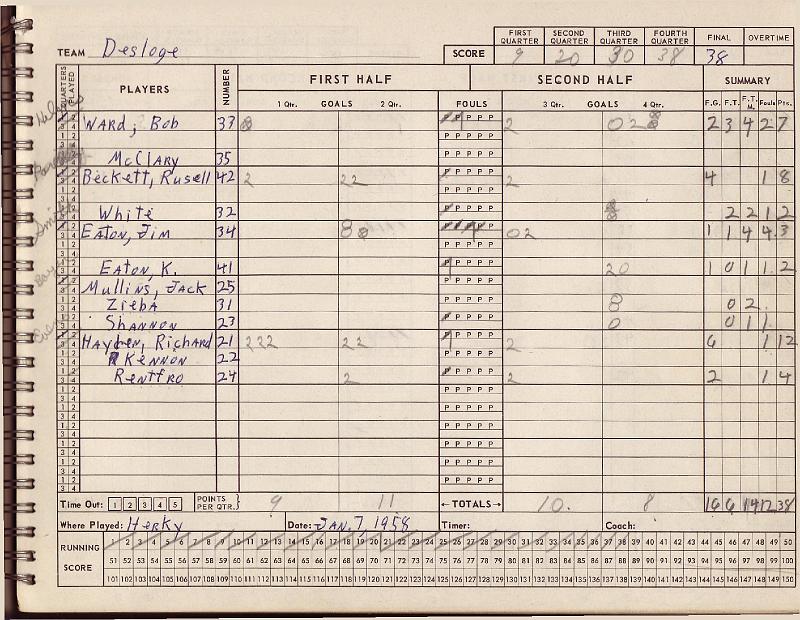 FIRST QUARTER SECOND QUARTER THIRD QUARTER FOURTH QUARTER FINAL OVERTIME
TEAM Desloge SCORE 9 20 30 38 38
QUARTERS PLAYED PLAYERS NUMBER FIRST HALF SECOND HALF SUMMARY
1 Qtr. GOALS 2 Qtr. FOULS 3 Qtr. GOALS 4 Qtr. F.G. F.T. F.T. M. Fouls Pts.
WARD, Bob 33 2 2 3 4 2 7
McClARY 35
Beckett, Rusell 42 2 22 2 4 1 8
White 32 2 2 1 2
EATON, Jim 34 02 1 1 4 4 3
EATON, K. 41 20 1 0 1 1 2
Mullins, JACK 25
Zieba 31 0 2
SHANNON 23 0 0 1 1
Hayden, Richard 21 222 22 2 6 1 12
KENNON 22
Rentfro 24 2 2 2 1 4
Time Out: 1 2 3 4 5 POINTS PER QTR. 9 11 ←TOTALS→ 10. 8 16 6 14 12 38
Where Played: Herky Date: JAN. 7, 1958 Timer: Coach:
RUNNING SCORE
2 3 4 5 6 7 8 9 10 11 12 13 14 15 16 17 18 19 20 21 22 23 24 25 26 27 28 29 30 31 32 33 34 35 36 37 38 39 40 41 42 43 44 45 46 47 48 49 50
51 52 53 54 55 56 57 58 59 60 61 62 63 64 65 66 67 68 69 70 71 72 73 74 75 76 77 78 79 80 81 82 83 84 85 86 87 88 89 90 91 92 93 94 95 96 97 98 99 100
101 102 103 104 105 106 107 108 109 110 111 112 113 114 115 116 117 118 119 120 121 122 123 124 125 126 127 128 129 130 131 132 133 134 135 136 137 138 139 140 141 142 143 144 145 146 147 148 149 150